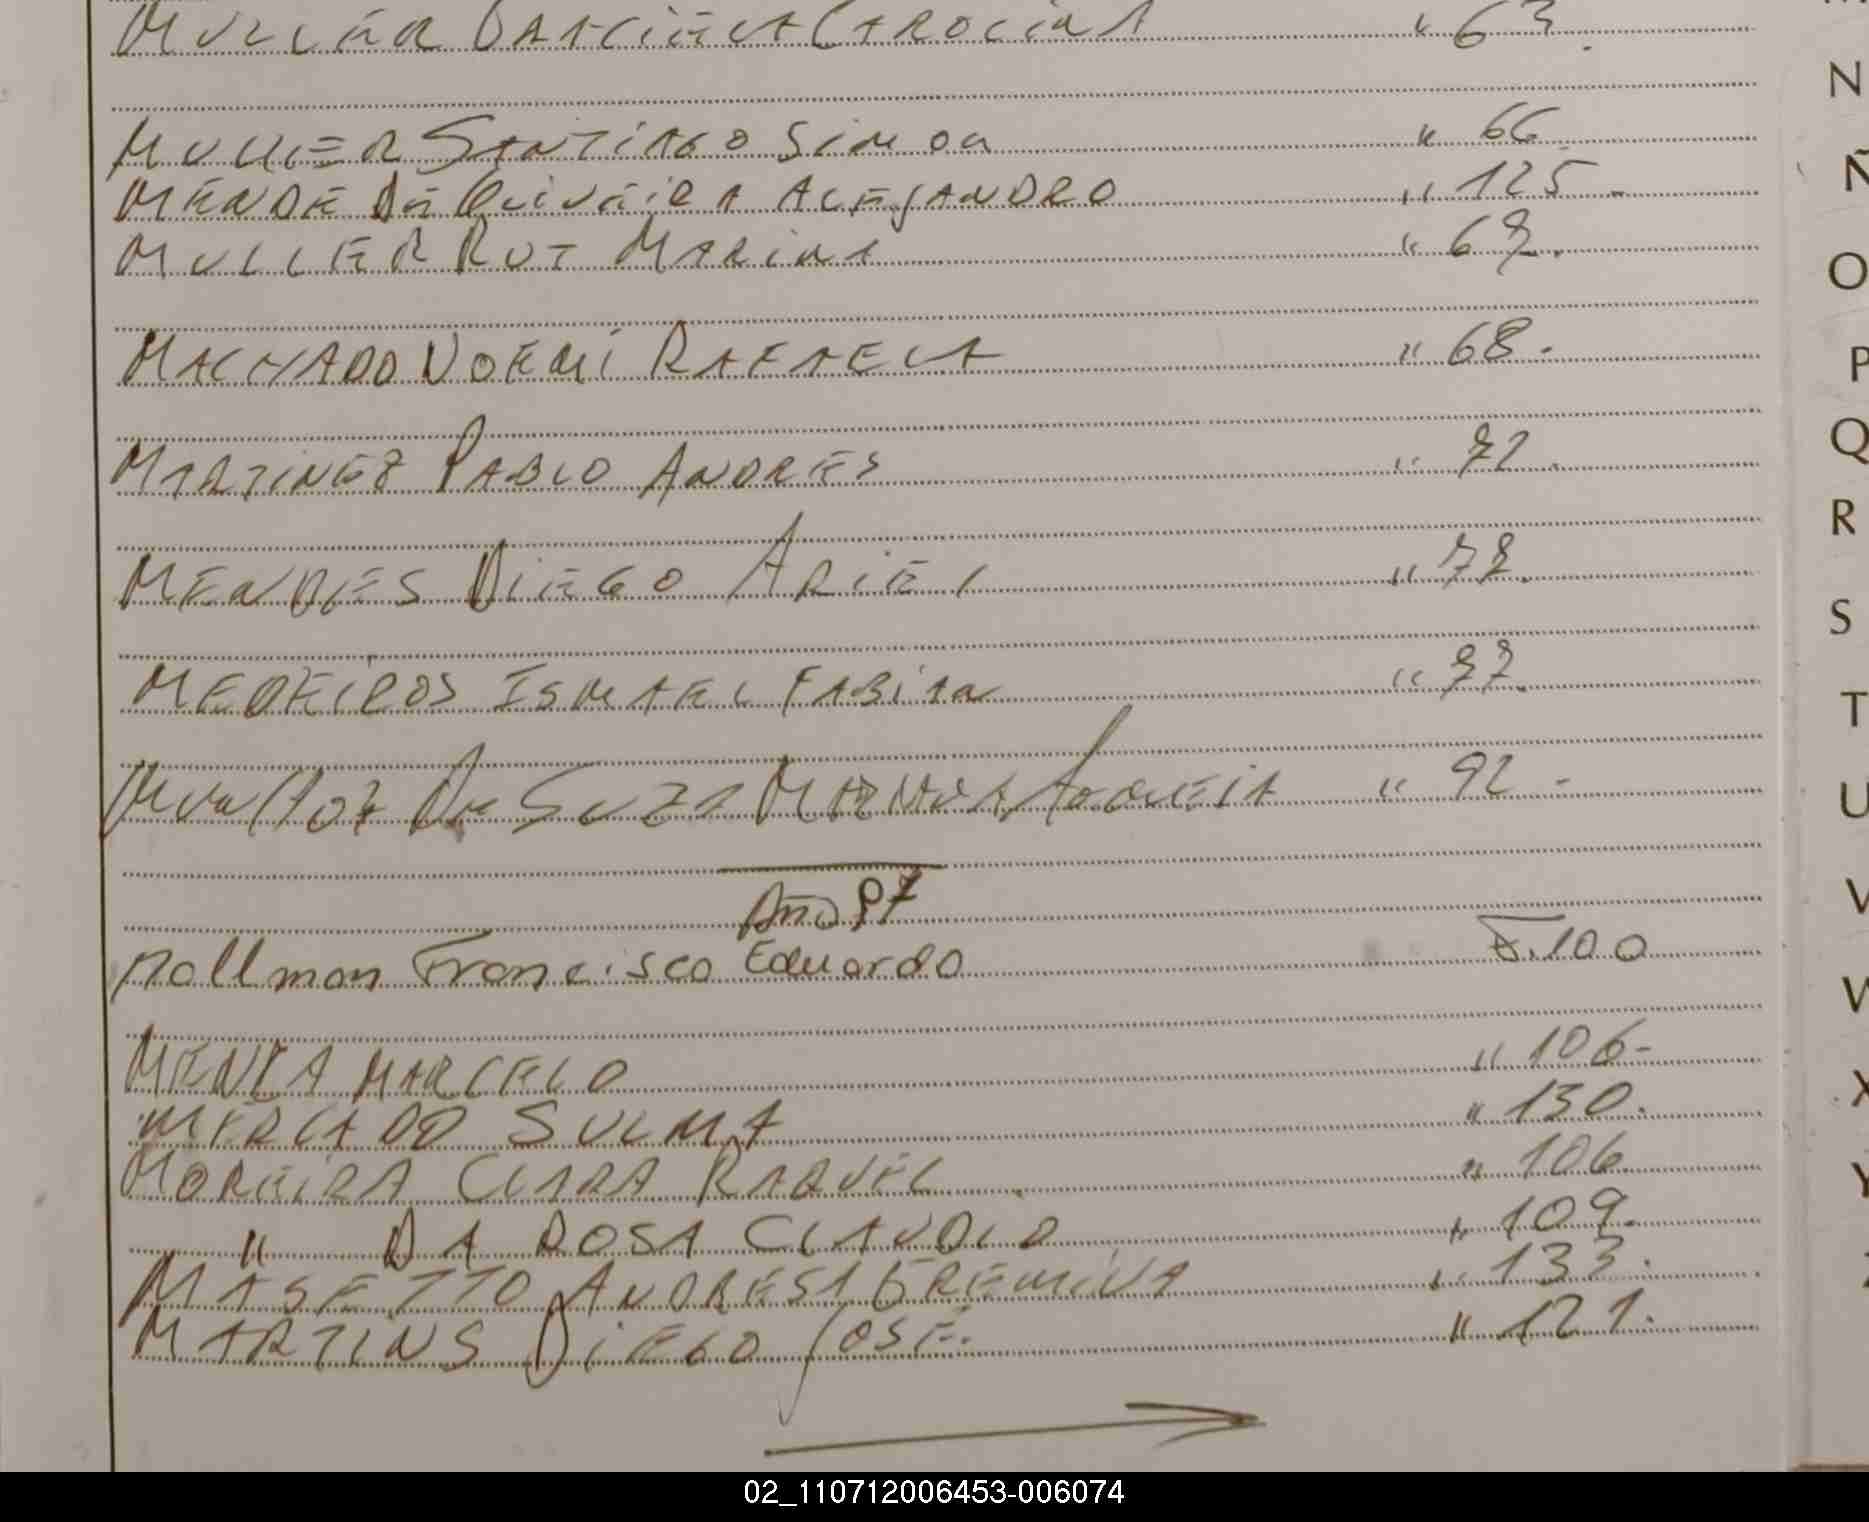 MULLER DANIELA CAROLINA " 63.
MULLER SANTIAGO SIMON " 66.
MENDE DE OLIVEIRA ALEJANDRO " 125.
MULLER RUT MARINA " 67.
MACHADO NOEMI RAFAELA " 68.
MARTINEZ PABLO ANDRES " 71.
MENDES DIEGO ARIEL " 72.
MEDEIROS ISMAEL FABIAN " 77.
DE SUZA " 92.
Año 97
Mallman Francisco Eduardo F.100
MENCA MARCELO " 106.
MERCADO SULMA " 130.
MOREIRA CLARA RAQUEL " 106.
" DA ROSA CLAUDIO " 109.
MASETTO ANDRESA " 133.
MARTINS DIEGO JOSE. " 121.
N
Ñ
O
P
Q
R
S
T
U
V
W
X
Y
02_110712006453-006074